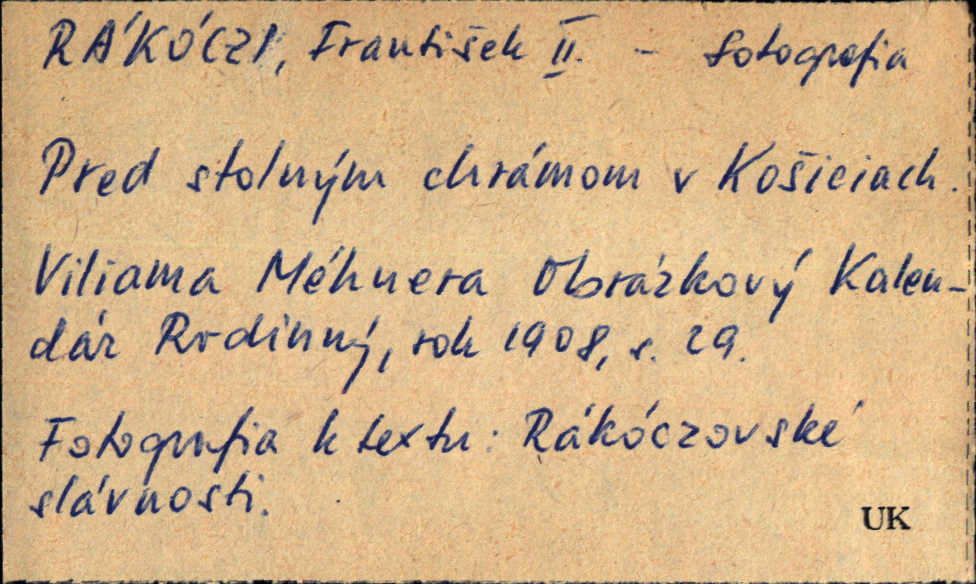 RÁKÓCZI, František II. - fotografia
Pred stolným chrámom v Košiciach.
Viliama Méhnera Obrázkový Kalen-
dár Rodinný, rok 1908, s. 29.
Fotografia k textu: Rákóczovské
slávnosti.
UK